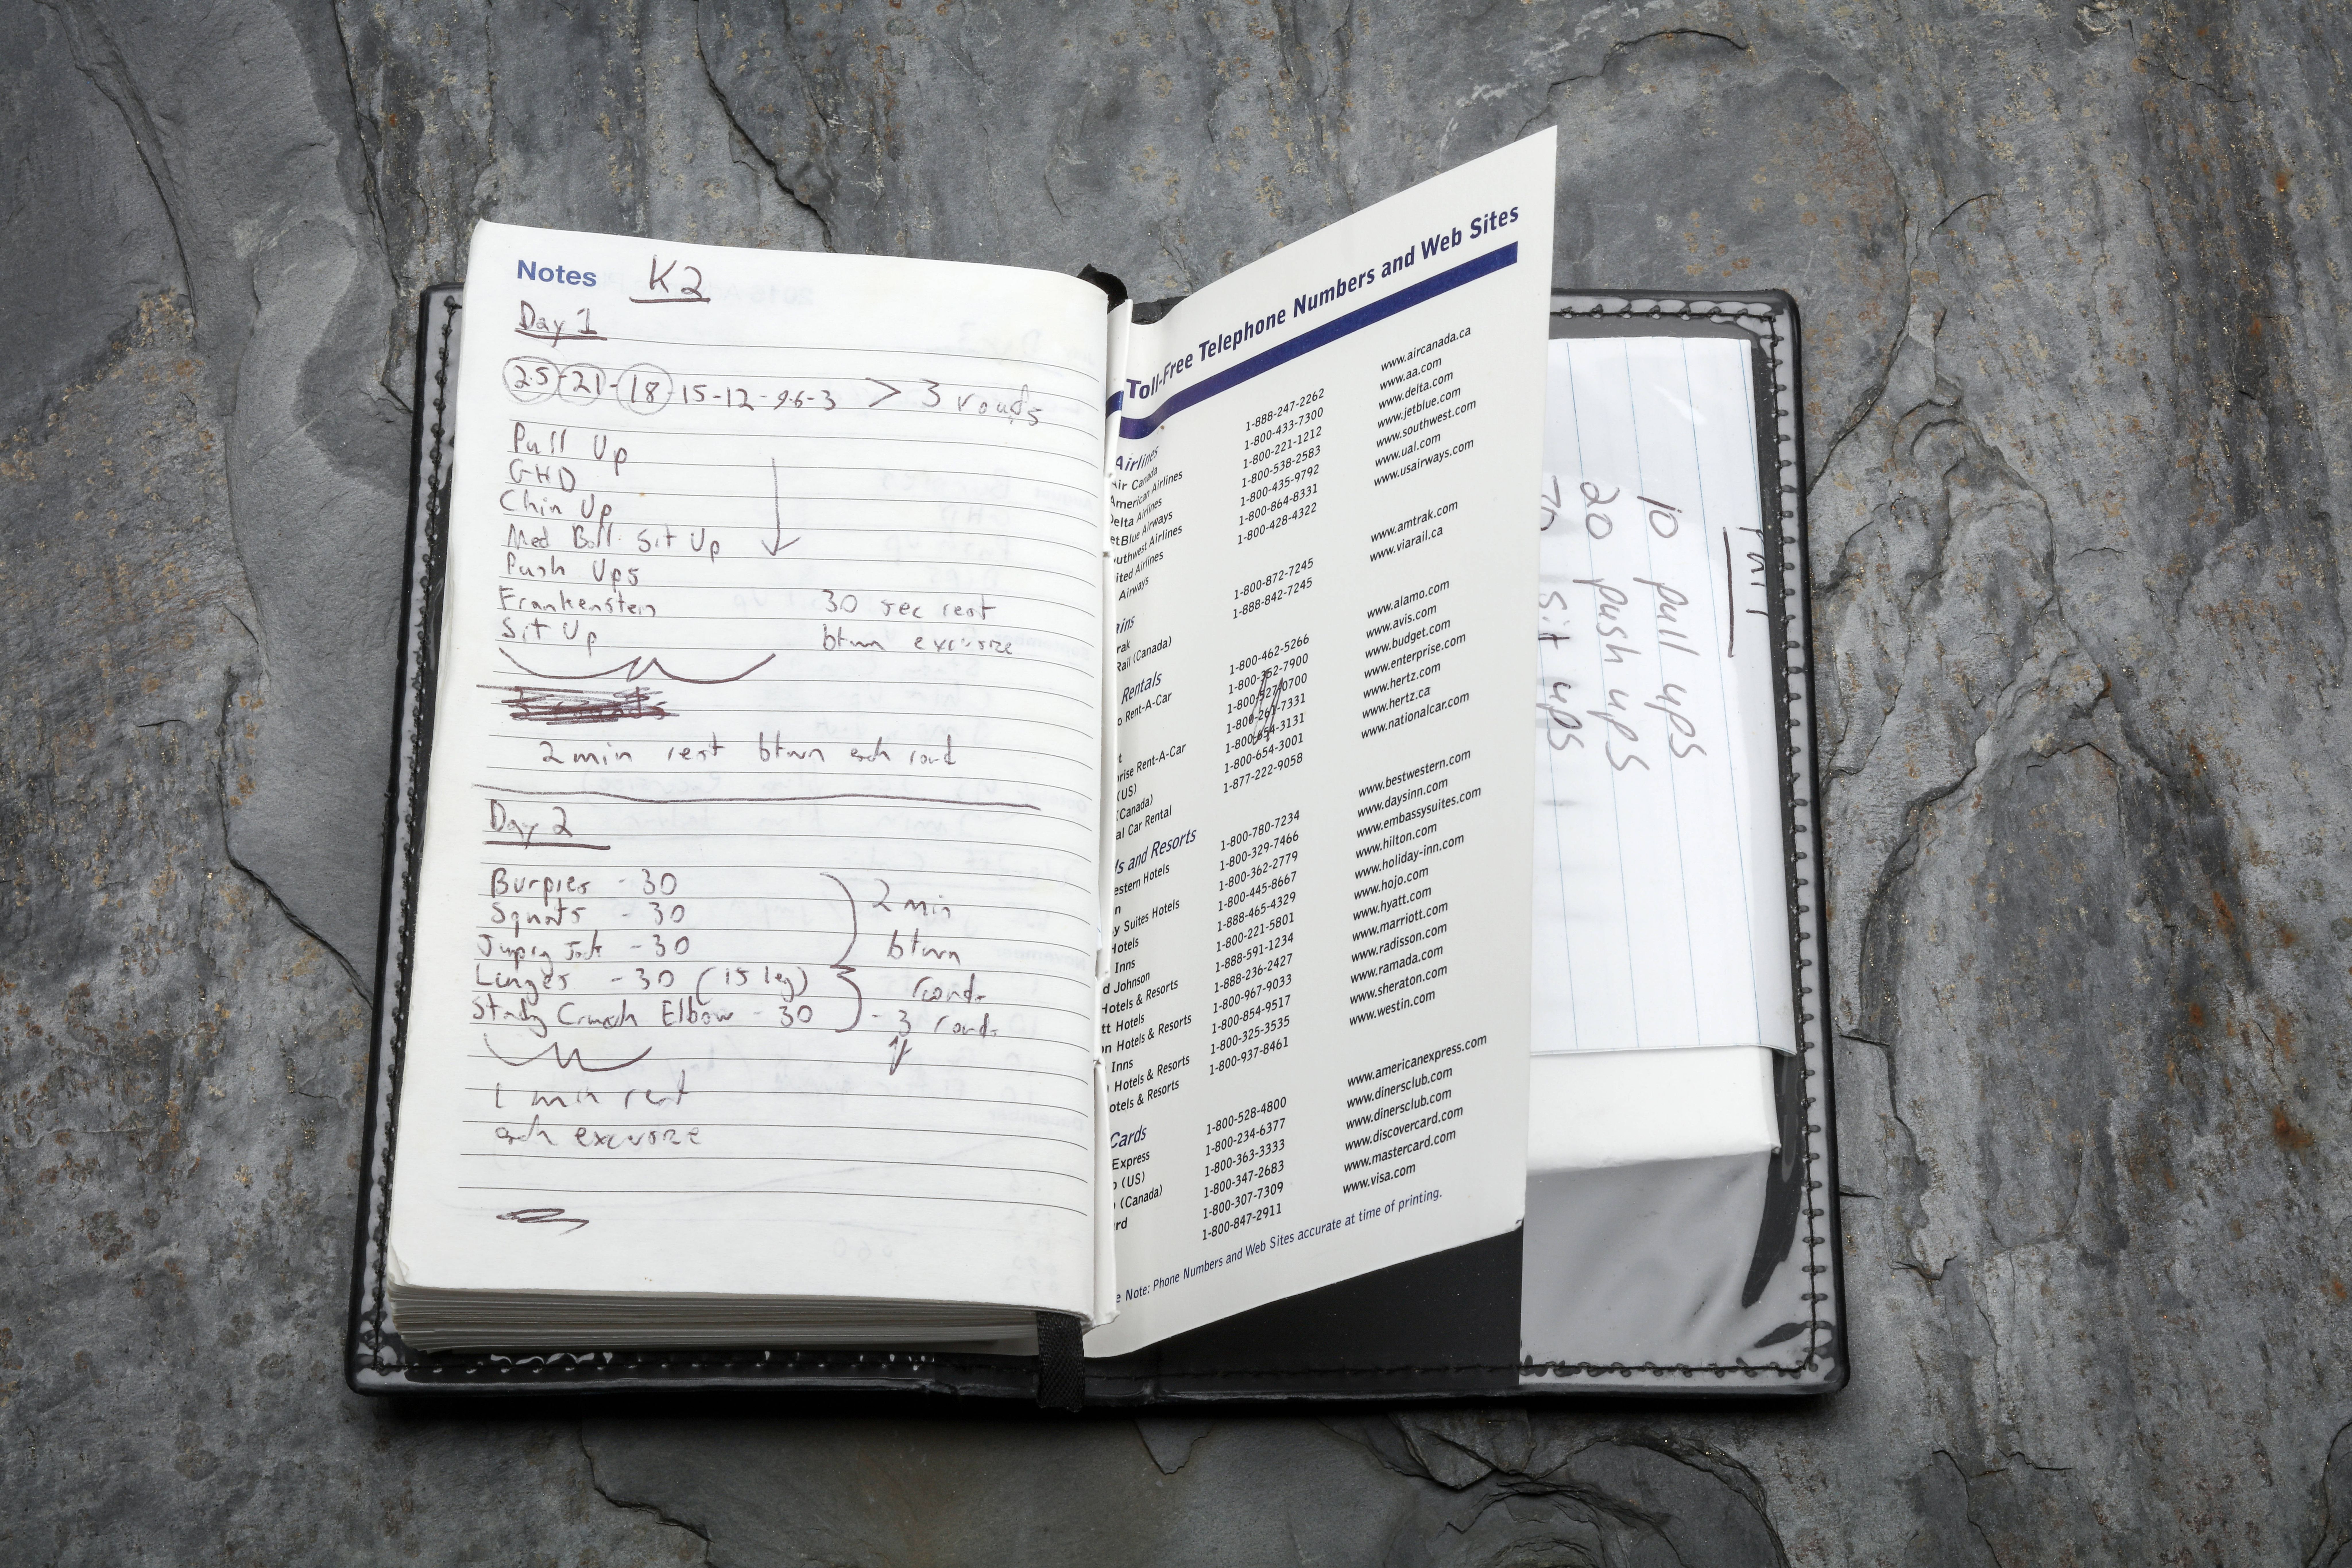 Notes K2
Day 1
25-21-18-15-12-9-6-3 > 3 rounds
Pull Up
GHD
Chin Up
Med Ball Sit Up
Push Ups
Frankenstein 30 sec rest
Sit Up btwn excersize
2 min rest btwn each round
Day 2
Burpies - 30 2 min
Squats - 30
Jumping Jack - 30 btwn
Lunges - 30 (15 leg) rounds
Crunch Elbow - 30 - 3 rounds
1 min rest
each excersize
Toll-Free Telephone Numbers and Web Sites
Airlines
Air Canada 1-888-247-2262 www.aircanada.ca
American Airlines 1-800-433-7300 www.aa.com
Delta Airlines 1-800-221-1212 www.delta.com
etBlue Airways 1-800-538-2583 www.jetblue.com
uthwest Airlines 1-800-435-9792 www.southwest.com
ited Airlines 1-800-864-8331 www.ual.com
Airways 1-800-428-4322 www.usairways.com
ins
rak 1-800-872-7245 www.amtrak.com
Rail (Canada) 1-888-842-7245 www.viarail.ca
Rentals
o Rent-A-Car 1-800-462-5266 www.alamo.com
1-800-352-7900 www.avis.com
t 1-800-527-0700 www.budget.com
prise Rent-A-Car 1-800-261-7331 www.enterprise.com
(US) 1-800-654-3131 www.hertz.com
(Canada) 1-800-654-3001 www.hertz.ca
al Car Rental 1-877-222-9058 www.nationalcar.com
ls and Resorts
estern Hotels 1-800-780-7234 www.bestwestern.com
n 1-800-329-7466 www.daysinn.com
y Suites Hotels 1-800-362-2779 www.embassysuites.com
Hotels 1-800-445-8667 www.hilton.com
Inns 1-888-465-4329 www.holiday-inn.com
d Johnson 1-800-221-5801 www.hojo.com
Hotels & Resorts 1-888-591-1234 www.hyatt.com
tt Hotels 1-888-236-2427 www.marriott.com
on Hotels & Resorts 1-800-967-9033 www.radisson.com
Inns 1-800-854-9517 www.ramada.com
Hotels & Resorts 1-800-325-3535 www.sheraton.com
otels & Resorts 1-800-937-8461 www.westin.com
Cards
Express 1-800-528-4800 www.americanexpress.com
(US) 1-800-234-6377 www.dinersclub.com
(Canada) 1-800-363-3333 www.dinersclub.com
rd 1-800-347-2683 www.discovercard.com
1-800-307-7309 www.mastercard.com
1-800-847-2911 www.visa.com
e Note: Phone Numbers and Web Sites accurate at time of printing.
10 pull ups
20 push ups
sit ups